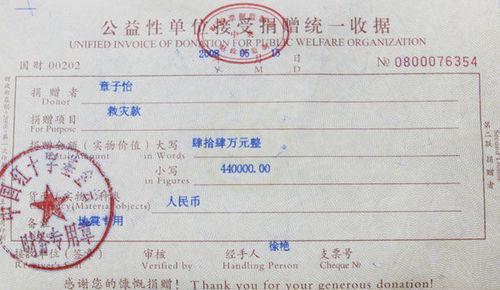 公益性单位接受捐赠统一收据
UNIFIED INVOICE OF DONATION FOR PUBLIC WELFARE ORGANIZATION
国财 00202 2008 05 15 № 0800076354
Y M D
捐赠者 章子怡
Donor
捐赠项目 救灾款
For Purpose
捐赠金额(实物价值) 大写 肆拾肆万元整
Total Amount in Words
小写 440000.00
in Figures
人民币
(Material objects)
备注 地震专用
中国红十字基金会
财务专用章
(签章) 审核 经手人 徐艳 支票号
Receiver's Seal Verified by Handling Person Cheque №
感谢您的慷慨捐赠! Thank you for your generous donation!